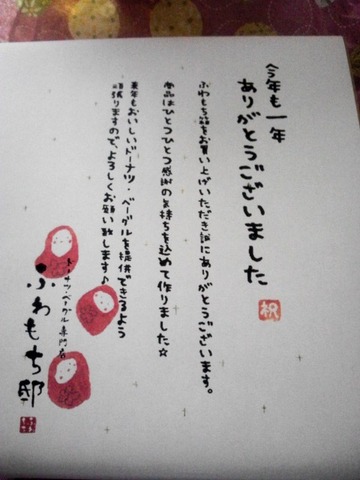 今年も一年
ありがとうございました
祝
ふわもち邸をお買い上げいただき誠にありがとうございます。
商品はひとつひとつ感謝の気持ちを込めて作りました☆
来年もおいしいドーナツ・ベーグルを提供できるよう
頑張りますので、よろしくお願い致します♪
ドーナツ・ベーグル専門店
ふわもち邸